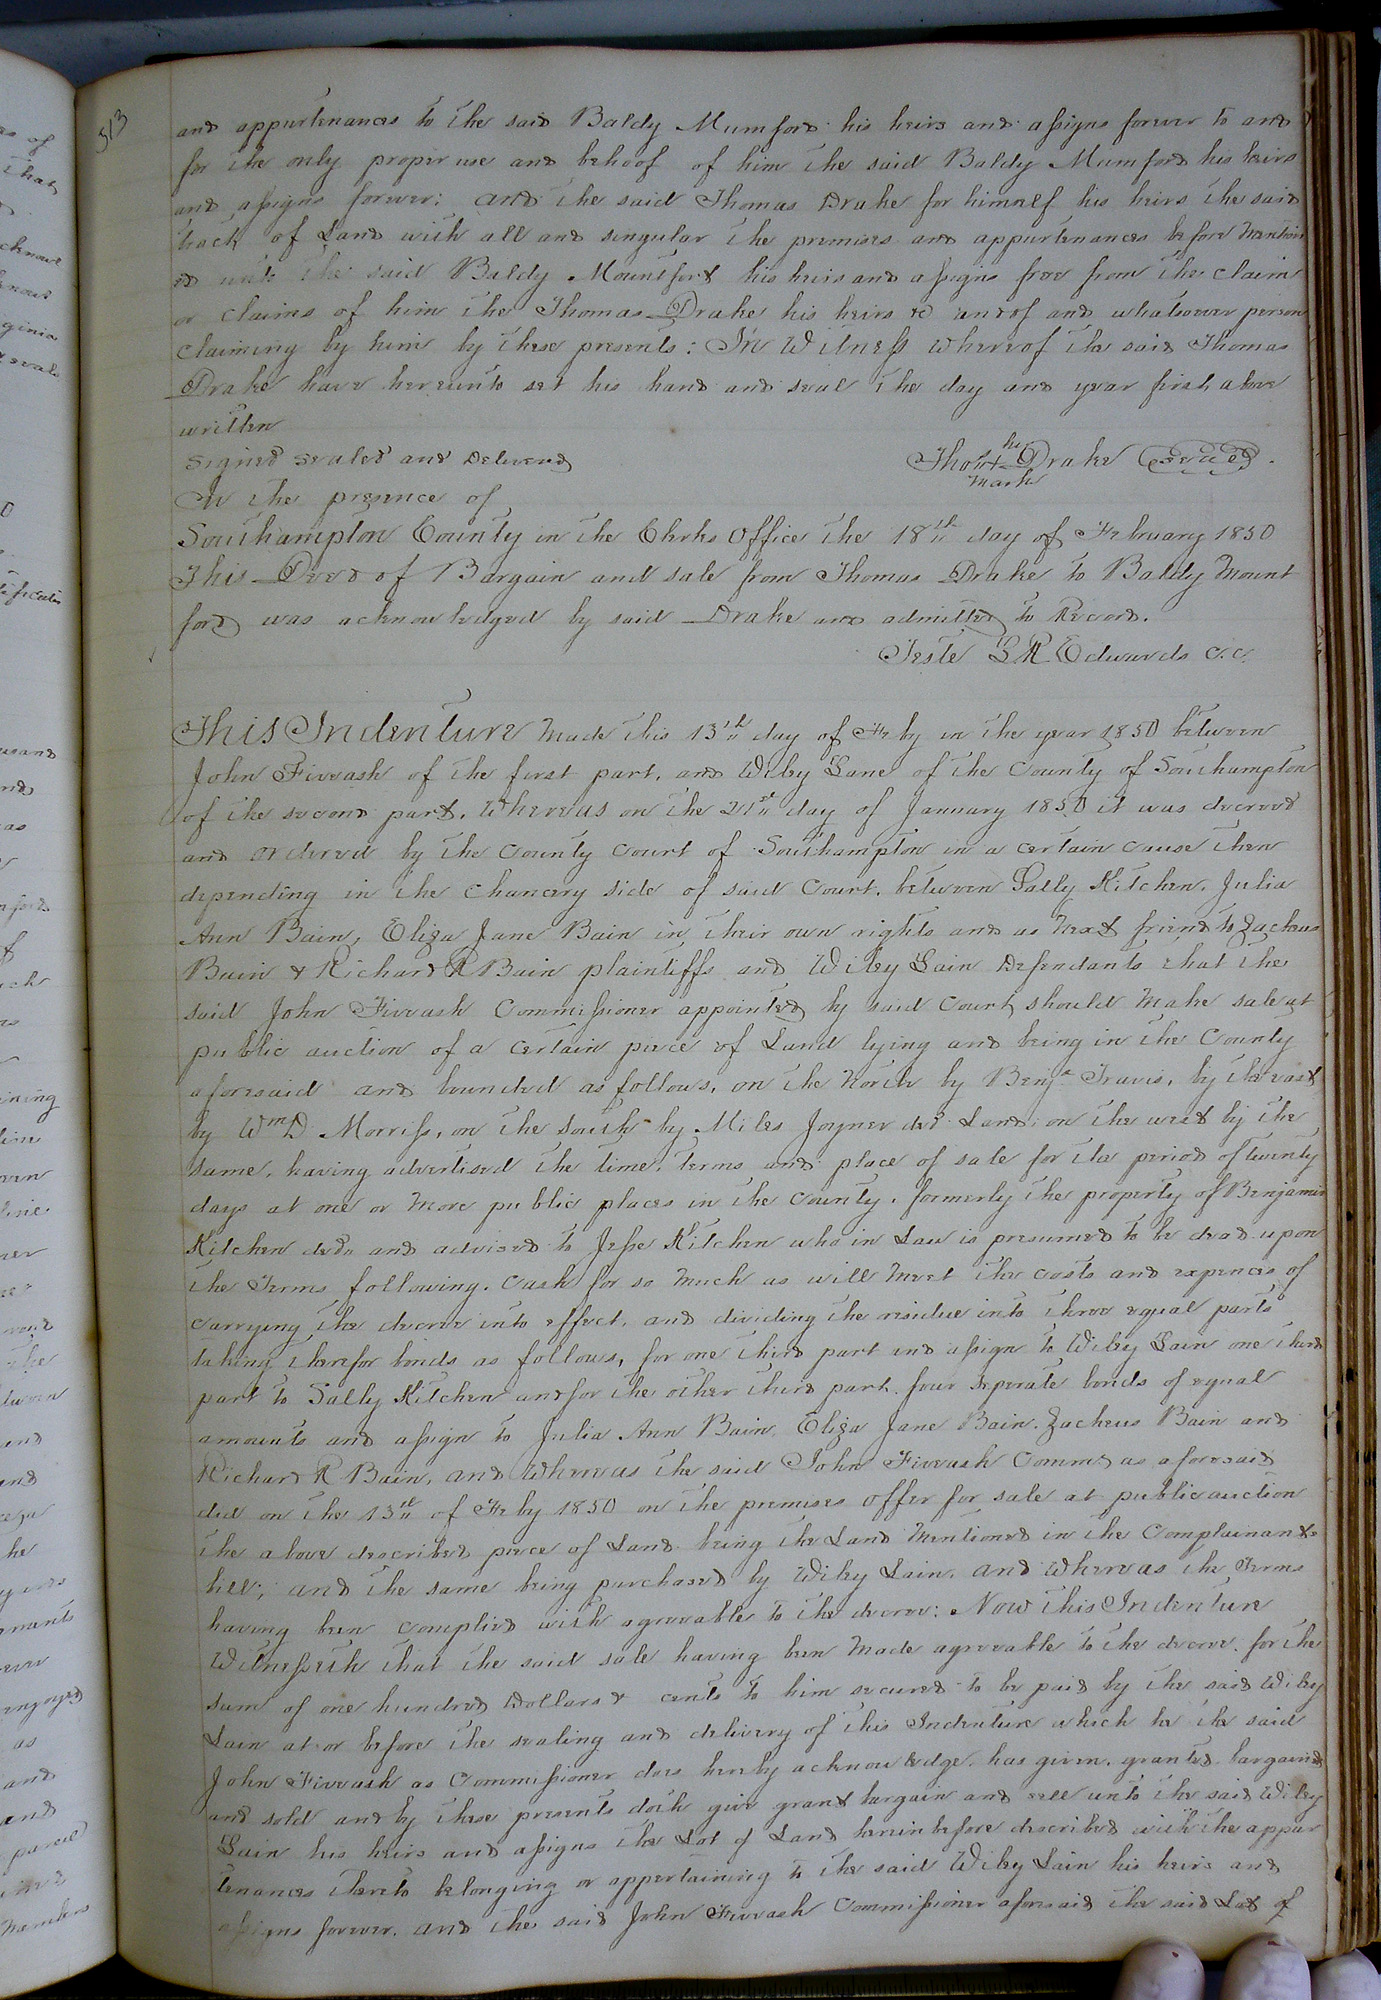 513
and appurtenances to the said Baldy Mumford his heirs and assigns forever to and
for the only proper use and behoof of him the said Baldy Mumford his heirs
and assigns forever: and the said Thomas Drake for himself his heirs the said
track of Land with all and singular the premises and appurtenances before mention
ed unto the said Baldy Mountfort his heirs and assigns free from the claim
or claims of him the Thomas Drake his heirs &c and of and whatsoever person
claiming by him by these presents: In Witness whereof the said Thomas
Drake have hereunto set his hand and seal the day and year first above
written
Signed sealed and Delivered
his
Tho + Drake (Seal)
mark
In the presence of
Southampton County in the Clerks Office the 18th day of February 1850
This Deed of Bargain and sale from Thomas Drake to Baldy Mount
ford was acknowledged by said Drake and admitted to Record.
Teste L R Edwards C.C.
This Indenture Made this 13th day of Feby in the year 1850 between
John Fivash of the first part, and Wiley Lane of the County of Southampton
of the second part. Whereas on the 21st day of January 1850 it was decreed
and ordered by the County Court of Southampton in a certain cause then
depending in the Chancery side of said Court, between Sally Kitchen, Julia
Ann Bain, Eliza Jane Bain in their own rights and as Next friend to Zacheus
Bain & Richard R Bain plaintiffs and Wiley Lain Defendants that the
said John Fivash Commissioner appointed by said Court should Make sale at
public auction of a certain piece of Land lying and being in the County
aforesaid and bounded as follows, on the North by Benja Travis, by the east
by Wm D Morriss, on the south by Miles Joyner decd Land; on the west by the
same, having advertised the time, terms and place of sale for the period of twenty
days at one or more public places in the county, formerly the property of Benjamin
Kitchen decd and advised to Jesse Kitchen who in Law is presumed to be dead upon
the Terms following. Cash for so much as will Meet the costs and expences of
carrying the decree into effect, and dividing the residue into three equal parts
taking therefor bonds as follows, for one third part and assign to Wiley Lain one third
part to Sally Kitchen and for the other third part four seperate bonds of equal
amounts and assign to Julia Ann Bain, Eliza Jane Bain, Zacheus Bain and
Richard R Bain, and Whereas the said John Fivash Commr as aforesaid
did on the 13th of Feby 1850 on the premises offer for sale at public auction
the above described piece of Land being the Land Mentioned in the Complainants
bill; and the same being purchased by Wiley Lain, and whereas the Terms
having been complied with agreeable to the decree: Now this Indenture
Witnesseth that the said sale having been Made agreeable to the decree, for the
sum of one hundred Dollars & cents to him secured to be paid by the said Wiley
Lain at or before the sealing and delivery of this Indenture which he the said
John Fivash as Commissioner does hereby acknowledge, has given, granted, bargained
and sold and by these presents doth give grant bargain and sell unto the said Wiley
Lain his heirs and assigns the Lot of Land herein before described with the appur
tenances thereto belonging or appertaining to the said Wiley Lain his heirs and
assigns forever. and the said John Fivash Commissioner aforesaid the said Lot of